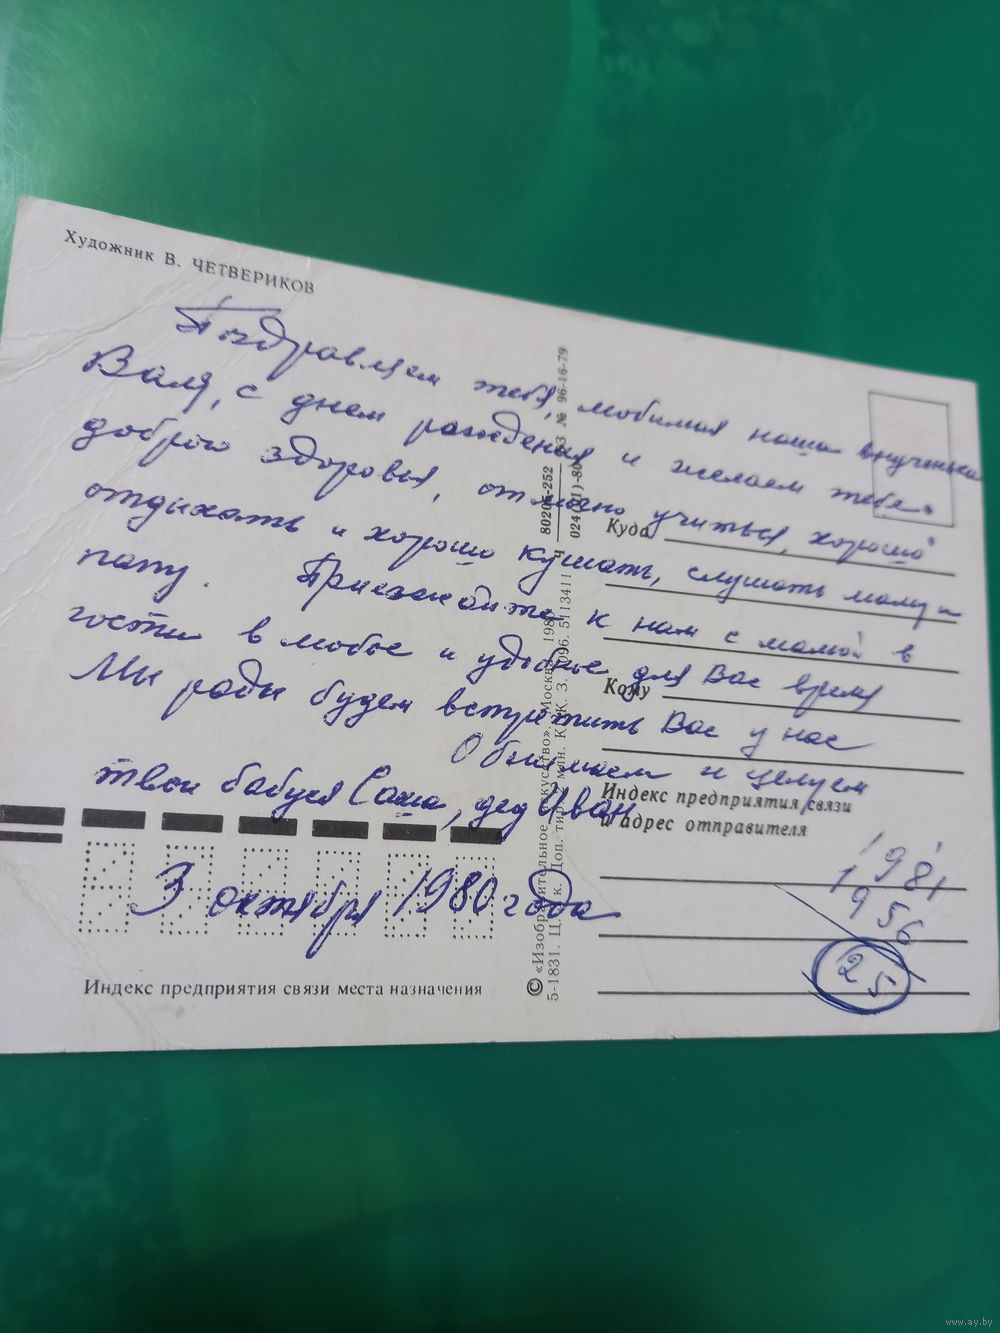 Художник В. ЧЕТВЕРИКОВ
Поздравляем тебя, любимая наша внученька
Валя, с днем рождения и желаем тебе
доброго здоровья, отлично учиться, хорошо
отдыхать и хорошо кушать, слушать маму и
папу. Приезжайте к нам с мамой в
гости в любое и удобное для Вас время
Мы рады будем встретить Вас у нас
Обнимаем и целуем
твои бабуся Саша, дед Иван
3 октября 1980 года
Индекс предприятия связи места назначения
Куда
Кому
Индекс предприятия связи
и адрес отправителя
1981
1956
25
© «Изобразительное искусство». Москва. 1980
5-1831.
5113411
024(01)-80
№ 96-16-79
www.ay.by